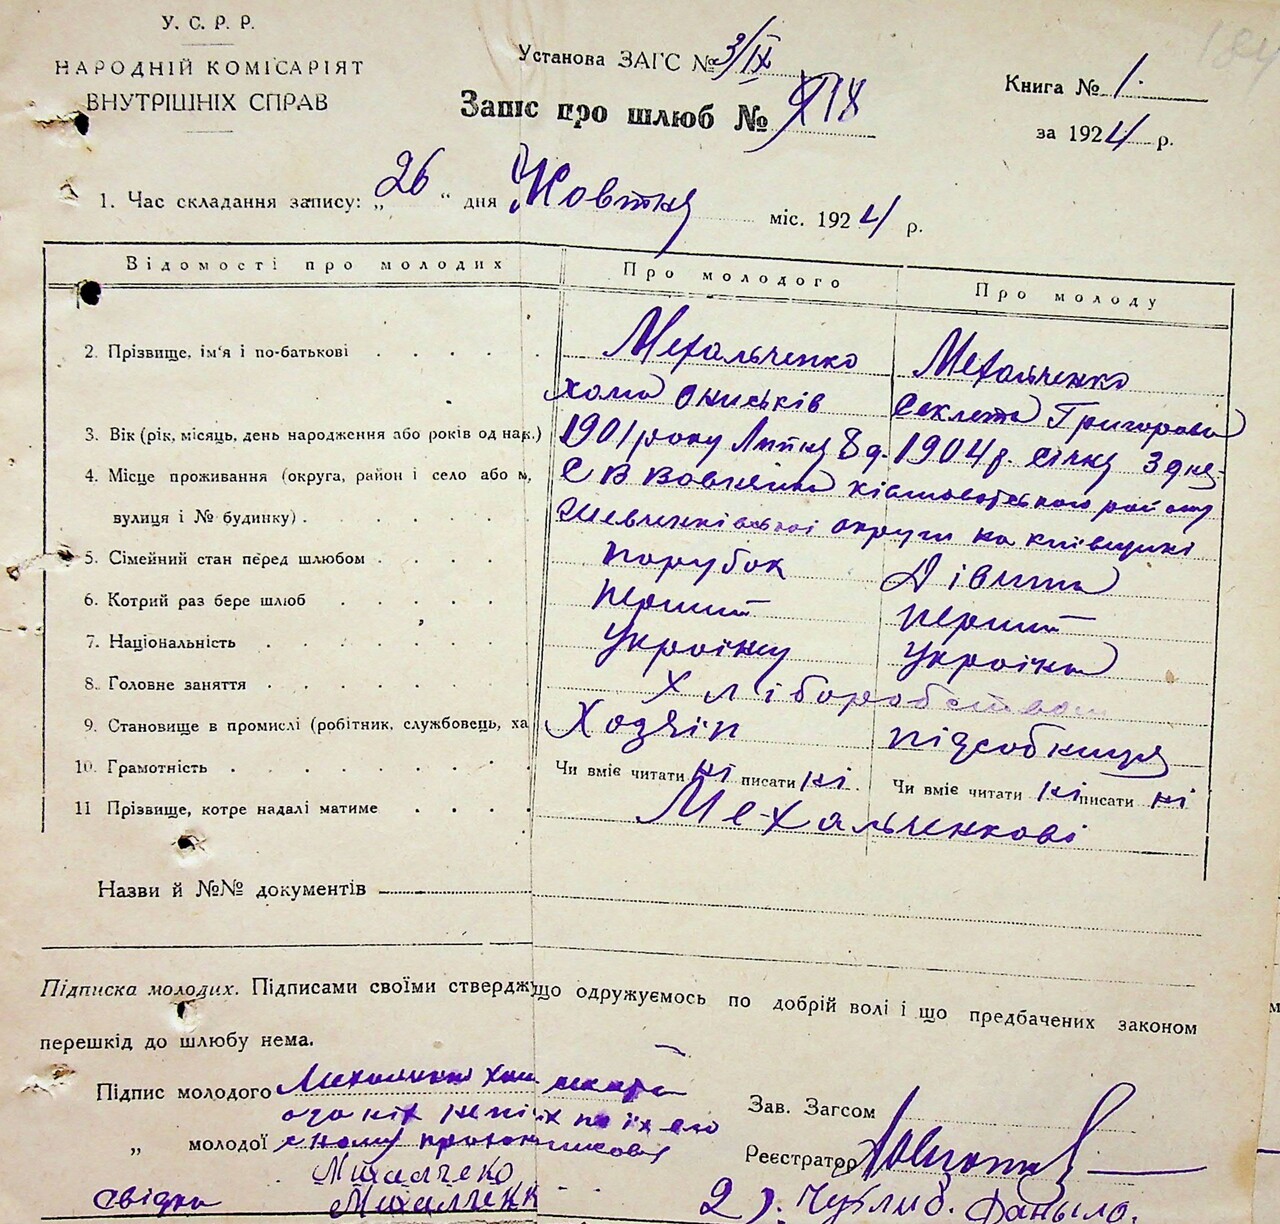 У. С. Р. Р.
НАРОДНІЙ КОМІСАРІЯТ
ВНУТРІШНІХ СПРАВ
Установа ЗАГС № 3/IX
Запіс про шлюб №
Книга № 1.
за 1924 р.
1. Час складання запису: „26“ дня Жовтня міс. 1924 р.
Відомості про молодих Про молодого Про молоду
2. Прізвище, ім'я і по-батькові Мехальченко Мехальченко
Хома Ониськів Секлета Григорова
3. Вік (рік, місяць, день народження або років од нар.) 1901 року Липня 8 д. 1904 р. Січня 3 дня
4. Місце проживання (округа, район і село або м, С В Вовнянка
вулиця і № будинку) Шевченківської округи на Київщині
5. Сімейний стан перед шлюбом порубок Дівиця
6. Котрий раз бере шлюб перший перший
7. Національність
8. Головне заняття Хліборобство
9. Становище в промислі (робітник, службовець, ха Хозяїн підсобниця
10. Грамотність Чи вміє читати ні писати ні. Чи вміє читати ні писати ні
11 Прізвище, котре надалі матиме Мехальченкові
Назви й №№ документів
Підписка молодих. Підписами своїми стверджу що одружуємось по добрій волі і що предбачених законом
перешкід до шлюбу нема.
Підпис молодого
„ молодої
Зав. Загсом
Реєстратор
Свідки
2).